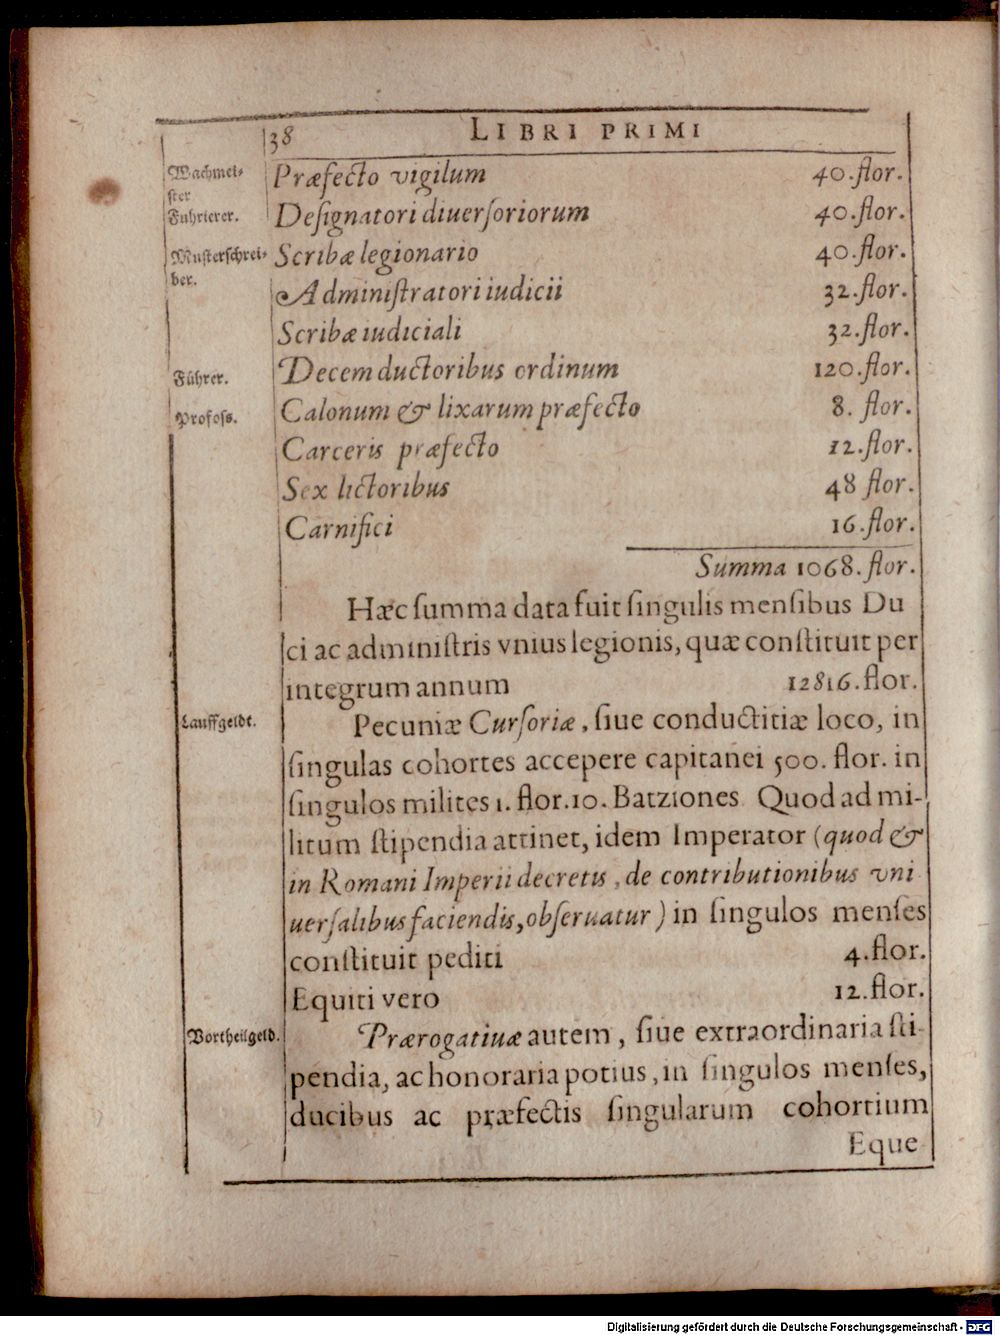 38 LIBRI PRIMI
Wachmei-
ster
Præfecto vigilum 40. flor.
Fuhrierer.
Deſignatori diuerſoriorum 40. flor.
Muſterſchrei-
ber.
Scribæ legionario 40. flor.
Adminiſtratori iudicii 32. flor.
Scribæ iudiciali 32. flor.
Führer.
Decem ductoribus ordinum 120. flor.
Profoſs.
Calonum & lixarum præfecto 8. flor.
Carceris præfecto 12. flor.
Sex lictoribus 48 flor.
Carnifici 16. flor.
Summa 1068. flor.
Hæc ſumma data fuit ſingulis menſibus Du
ci ac adminiſtris vnius legionis, quæ conſtituit per
integrum annum 12816. flor.
Lauffgeldt.
Pecuniæ Curſoriæ, ſiue conductitiæ loco, in
ſingulas cohortes accepere capitanei 500. flor. in
ſingulos milites 1. flor. 10. Batziones Quod ad mi-
litum ſtipendia attinet, idem Imperator (quod &
in Romani Imperii decretis, de contributionibus vni
uerſalibus faciendis, obſeruatur) in ſingulos menſes
conſtituit pediti 4. flor.
Equiti vero 12. flor.
Vortheilgeld.
Prærogatiuæ autem, ſiue extraordinaria ſti-
pendia, ac honoraria potius, in ſingulos menſes,
ducibus ac præfectis ſingularum cohortium
Eque
Digitalisierung gefördert durch die Deutsche Forschungsgemeinschaft - DFG